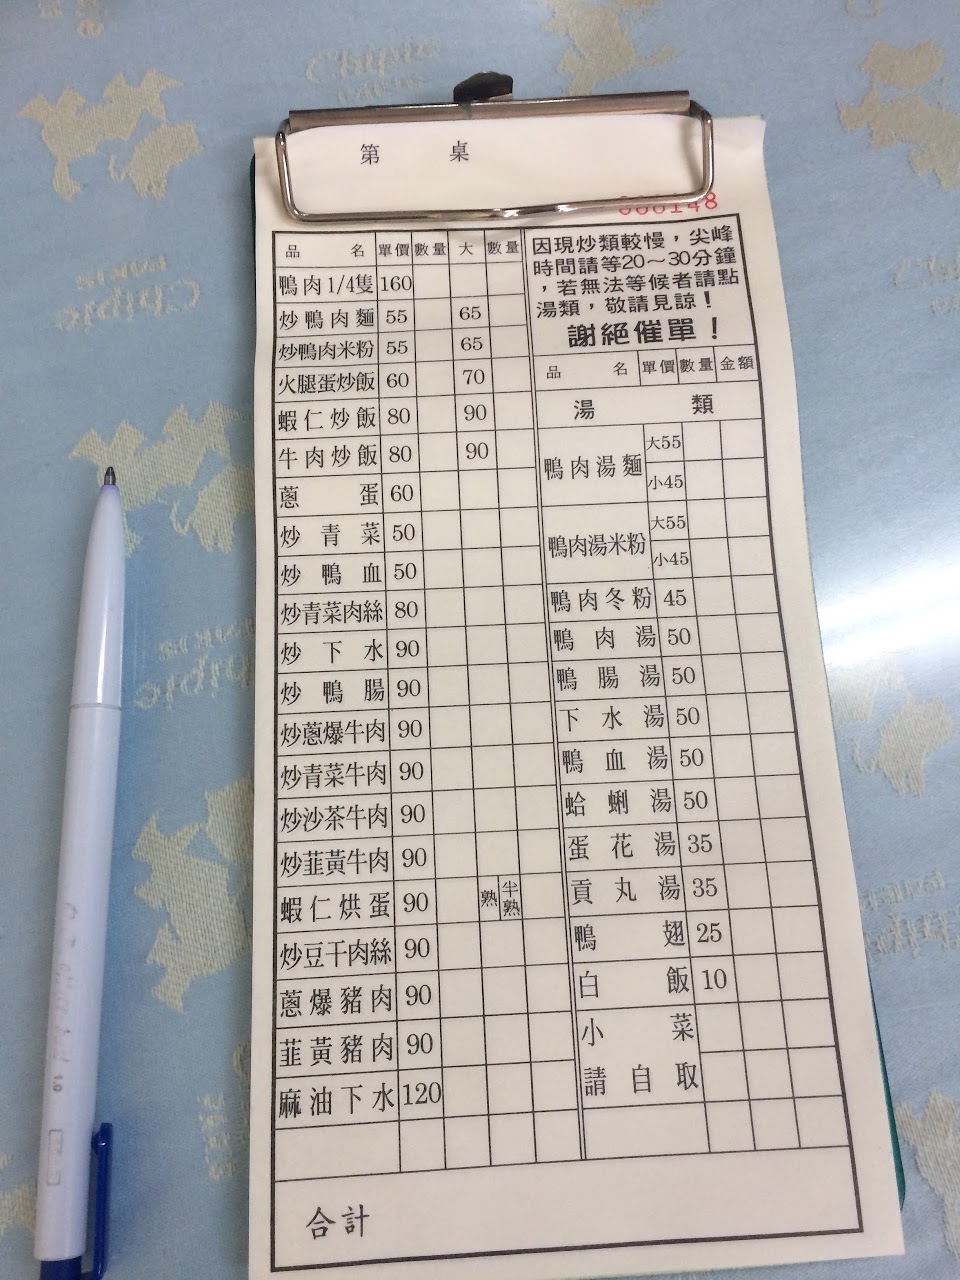 第 桌
品名 單價 數量 大 數量
鴨肉1/4隻 160
炒鴨肉麵 55 65
炒鴨肉米粉 55 65
火腿蛋炒飯 60 70
蝦仁炒飯 80 90
牛肉炒飯 80 90
蔥蛋 60
炒青菜 50
炒鴨血 50
炒青菜肉絲 80
炒下水 90
炒鴨腸 90
炒蔥爆牛肉 90
炒青菜牛肉 90
炒沙茶牛肉 90
炒韮黃牛肉 90
蝦仁烘蛋 90 熟 半熟
炒豆干肉絲 90
蔥爆豬肉 90
韮黃豬肉 90
麻油下水 120
因現炒類較慢，尖峰
時間請等20～30分鐘
，若無法等候者請點
湯類，敬請見諒！
謝絕催單！
品名 單價 數量 金額
湯類
鴨肉湯麵 大55
小45
鴨肉湯米粉 大55
小45
鴨肉冬粉 45
鴨肉湯 50
鴨腸湯 50
下水湯 50
鴨血湯 50
蛤蜊湯 50
蛋花湯 35
貢丸湯 35
鴨翅 25
白飯 10
小菜
請自取
合計
Chipie
Chipie
Chipie
1.0